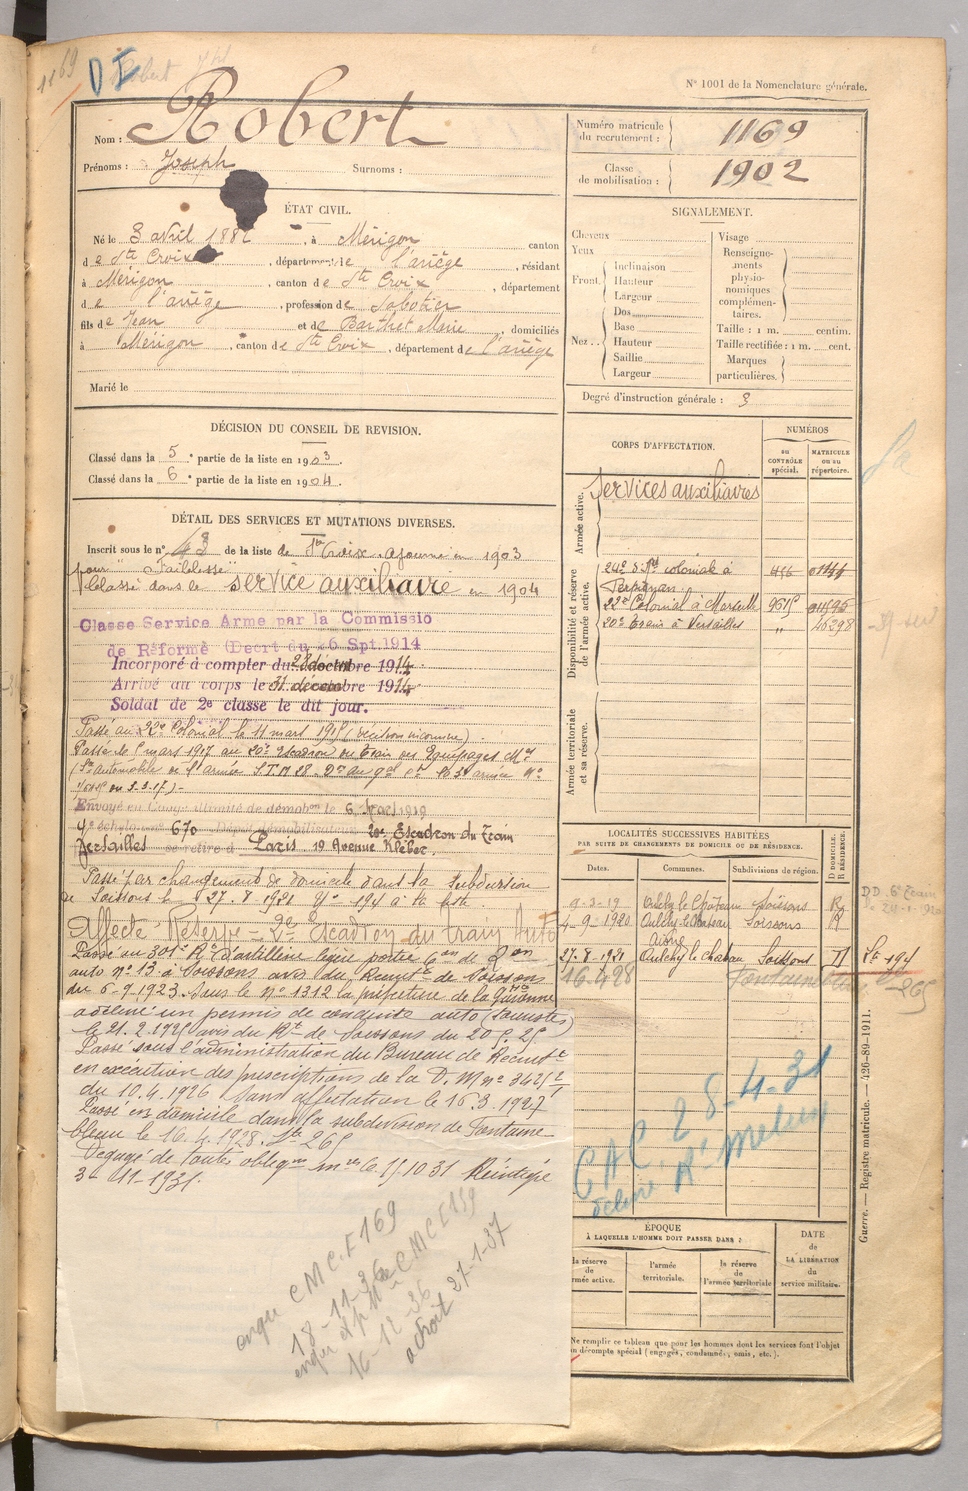 1169
D I
N° 1001 de la Nomenclature générale.
Nom : Robert
Prénoms : Joseph Surnoms :
Numéro matricule du recrutement : 1169
Classe de mobilisation : 1902
ÉTAT CIVIL.
Né le 3 avril 1882, à Mérigon canton
de Ste Croix, département de l'ariège, résidant
à Mérigon, canton de Ste Croix, département
de l'ariège, profession de Sabotier
fils de Jean et de Barthet Marie, domiciliés
à Mérigon, canton de Ste Croix, département de l'ariège
Marié le
SIGNALEMENT.
Cheveux
Yeux
Front. Inclinaison
Hauteur
Largeur
Nez. Dos
Base
Hauteur
Saillie
Largeur
Visage
Renseignements physionomiques complémentaires.
Taille : 1 m. centim.
Taille rectifiée : 1 m. cent.
Marques particulières.
Degré d'instruction générale : 3
DÉCISION DU CONSEIL DE REVISION.
Classé dans la 5e partie de la liste en 1903.
Classé dans la 6e partie de la liste en 1904.
DÉTAIL DES SERVICES ET MUTATIONS DIVERSES.
Inscrit sous le n° 48 de la liste de Ste Croix. Ajourné en 1903
pour "Faiblesse"
Classé dans le service auxiliaire en 1904
Classe Service Arme par la Commissio
de Réforme (Decrt du 26 Spt.1914
Incorporé à compter du 28 décembre 1914.
Arrivé au corps le 31 décembre 1914.
Soldat de 2e classe le dit jour.
Passé au 22e Colonial le 11 mars 1915 (décision ministre).
Passé le mars 1917 au 20e Escadron du Train des Equipages Mres
Envoyé en Congé illimité de démobon le 6 Mars 1919
4e échelon n° 670 Dépôt démobilisateur 20e Escadron du Train
Versailles se retire à Paris 19 Avenue Kléber.
Passé par changement de domicile dans la subdivision
de Soissons le 27.8.1921 No 194 à la liste
Affecté Réserve - 20e Escadron du train Auto
Passé au 301e Rt d'artillerie légère portée
auto n° 13 à Soissons avis du Recrutt de Soissons
du 6-9-1923. Sous le n° 1312 la préfecture de la Hte Garonne
a délivré un permis de conduire auto (Touristes)
le 21.2.1925 avis du Rt de Soissons du 20.5.25.
Passé sous l'administration du Bureau de Recrutt
en exécution des prescriptions de la D. M n° 3425
du 10.4.1926. Sans affectation le 15.3.1927
Passé en domicile dans la subdivision de Fontaine-
bleau le 16.4.1928. Ste 265
Dégagé de toutes obligons mres le 15 10 31 Réintégré
3- 11-1931.
enqu CMC.I 169
18-11-36
CMC I 139
16-12-36
27-1-37
CORPS D'AFFECTATION.
NUMÉROS
au CONTRÔLE spécial.
MATRICULE ou au répertoire.
Armée active.
Services auxiliaires
Disponibilité et réserve de l'armée active.
24e Rt colonial à Perpignan. 456 01144
22e Colonial à Marseille 9615 011596
20e Train à Versailles " 16298
Armée territoriale et sa réserve.
LOCALITÉS SUCCESSIVES HABITÉES
PAR SUITE DE CHANGEMENTS DE DOMICILE OU DE RÉSIDENCE.
Dates. Communes. Subdivisions de région. D DOMICILE. R RÉSIDENCE.
9-3-19 Oulchy le Château Soissons R
4-9-1920 Oulchy-le-Chateau Soissons R
Aisne
27-8-1921 Oulchy le Chateau Soissons D Ste 194
16.4.28 Fontainebleau 265
DD. 6e Train
CAC 28-4-31
Rt Melun
ÉPOQUE
À LAQUELLE L'HOMME DOIT PASSER DANS :
la réserve de armée active.
l'armée territoriale.
la réserve de l'armée territoriale
DATE de LA LIBÉRATION du service militaire.
Ne remplir ce tableau que pour les hommes dont les services font l'objet
un décompte spécial (engagés, condamnés, omis, etc.).
Guerre. — Registre matricule. — 426-89-1911.